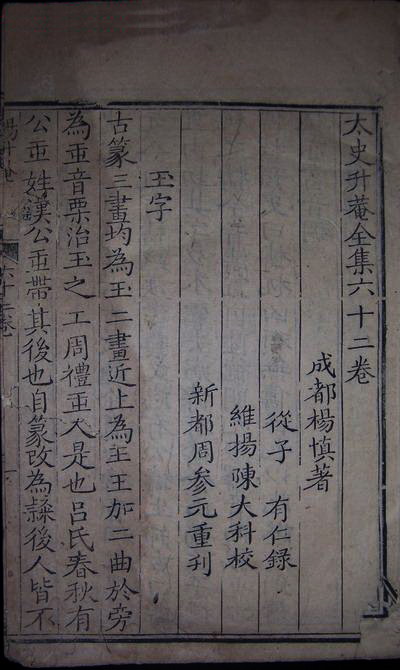 太史升菴全集六十二卷
成都楊慎著
從子 有仁錄
維揚陳大科校
新都周參元重刋
玉字
古篆三畫均為王二畫近上為王王加二曲於旁
為𤣩音栗治玉之工周禮𤣩人是也吕氏春秋有
公𤣩姓漢公𤣩帶其後也自篆改為隷後人皆不